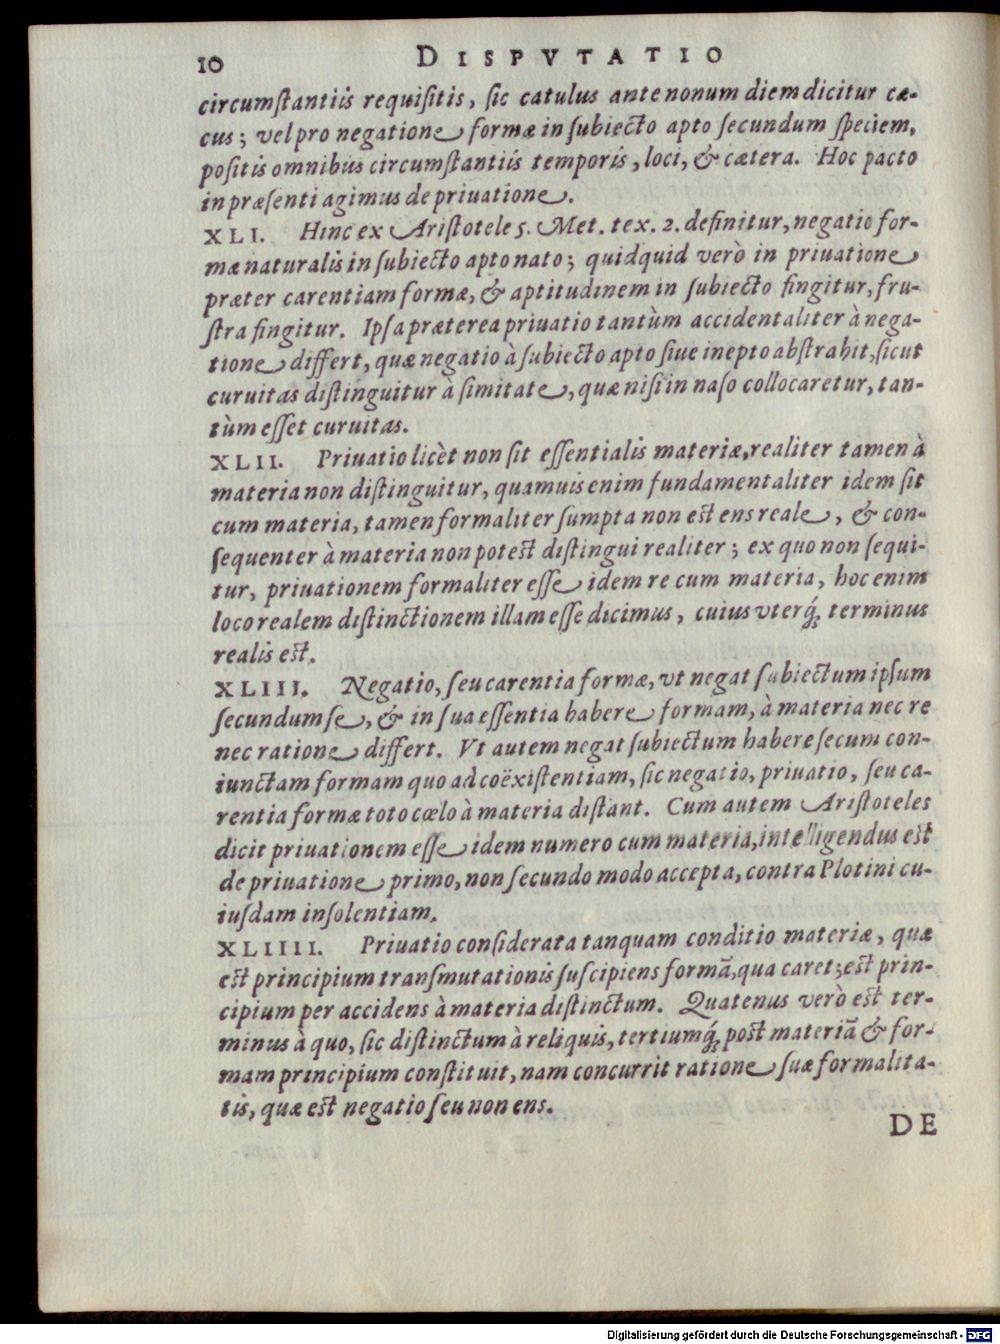 10 DISPVTATIO
circumſtantiis requiſitis, ſic catulus ante nonum diem dicitur cæ-
cus; vel pro negatione formæ in ſubiecto apto ſecundum ſpeciem,
poſitis omnibus circumſtantiis temporis, loci, & cætera. Hoc pacto
in præſenti agimus de priuatione.
XLI. Hinc ex Ariſtotele 5. Met. tex. 2. definitur, negatio for-
mæ naturalis in ſubiecto apto nato; quidquid verò in priuatione
præter carentiam formæ, & aptitudinem in ſubiecto fingitur, fru-
ſtra fingitur. Ipſa præterea priuatio tantùm accidentaliter à nega-
tione differt, quæ negatio à ſubiecto apto ſiue inepto abſtrahit, ſicut
curuitas diſtinguitur à ſimitate, quæ niſi in naſo collocaretur, tan-
tùm eſſet curuitas.
XLII. Priuatio licèt non ſit eſſentialis materiæ, realiter tamen à
materia non diſtinguitur, quamuis enim fundamentaliter idem ſit
cum materia, tamen formaliter ſumpta non eſt ens reale, & con-
ſequenter à materia non poteſt diſtingui realiter; ex quo non ſequi-
tur, priuationem formaliter eſſe idem re cum materia, hoc enim
loco realem diſtinctionem illam eſſe dicimus, cuius vterq́; terminus
realis eſt.
XLIII. Negatio, ſeu carentia formæ, vt negat ſubiectum ipſum
ſecundum ſe, & in ſua eſſentia habere formam, à materia nec re
nec ratione differt. Vt autem negat ſubiectum habere ſecum con-
iunctam formam quo ad coëxiſtentiam, ſic negatio, priuatio, ſeu ca-
rentia formæ toto cœlo à materia diſtant. Cum autem Ariſtoteles
dicit priuationem eſſe idem numero cum materia, intelligendus eſt
de priuatione primo, non ſecundo modo accepta, contra Plotini cu-
iuſdam inſolentiam.
XLIIII. Priuatio conſiderata tanquam conditio materiæ, quæ
eſt principium tranſmutationis ſuſcipiens formã, qua caret; eſt prin-
cipium per accidens à materia diſtinctum. Quatenus verò eſt ter-
minus à quo, ſic diſtinctum à reliquis, tertiumq́; poſt materiã & for-
mam principium conſtituit, nam concurrit ratione ſuæ formalita-
tis, quæ eſt negatio ſeu non ens.
DE
Digitalisierung gefördert durch die Deutsche Forschungsgemeinschaft - DFG